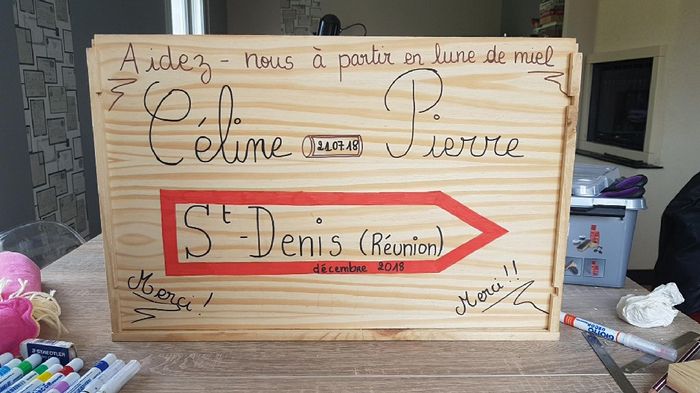 Aidez-nous à partir en lune de miel
Céline 21.07.18 Pierre
St-Denis (Réunion)
décembre 2018
Merci! Merci!!
STAEDTLER
GIOTTO